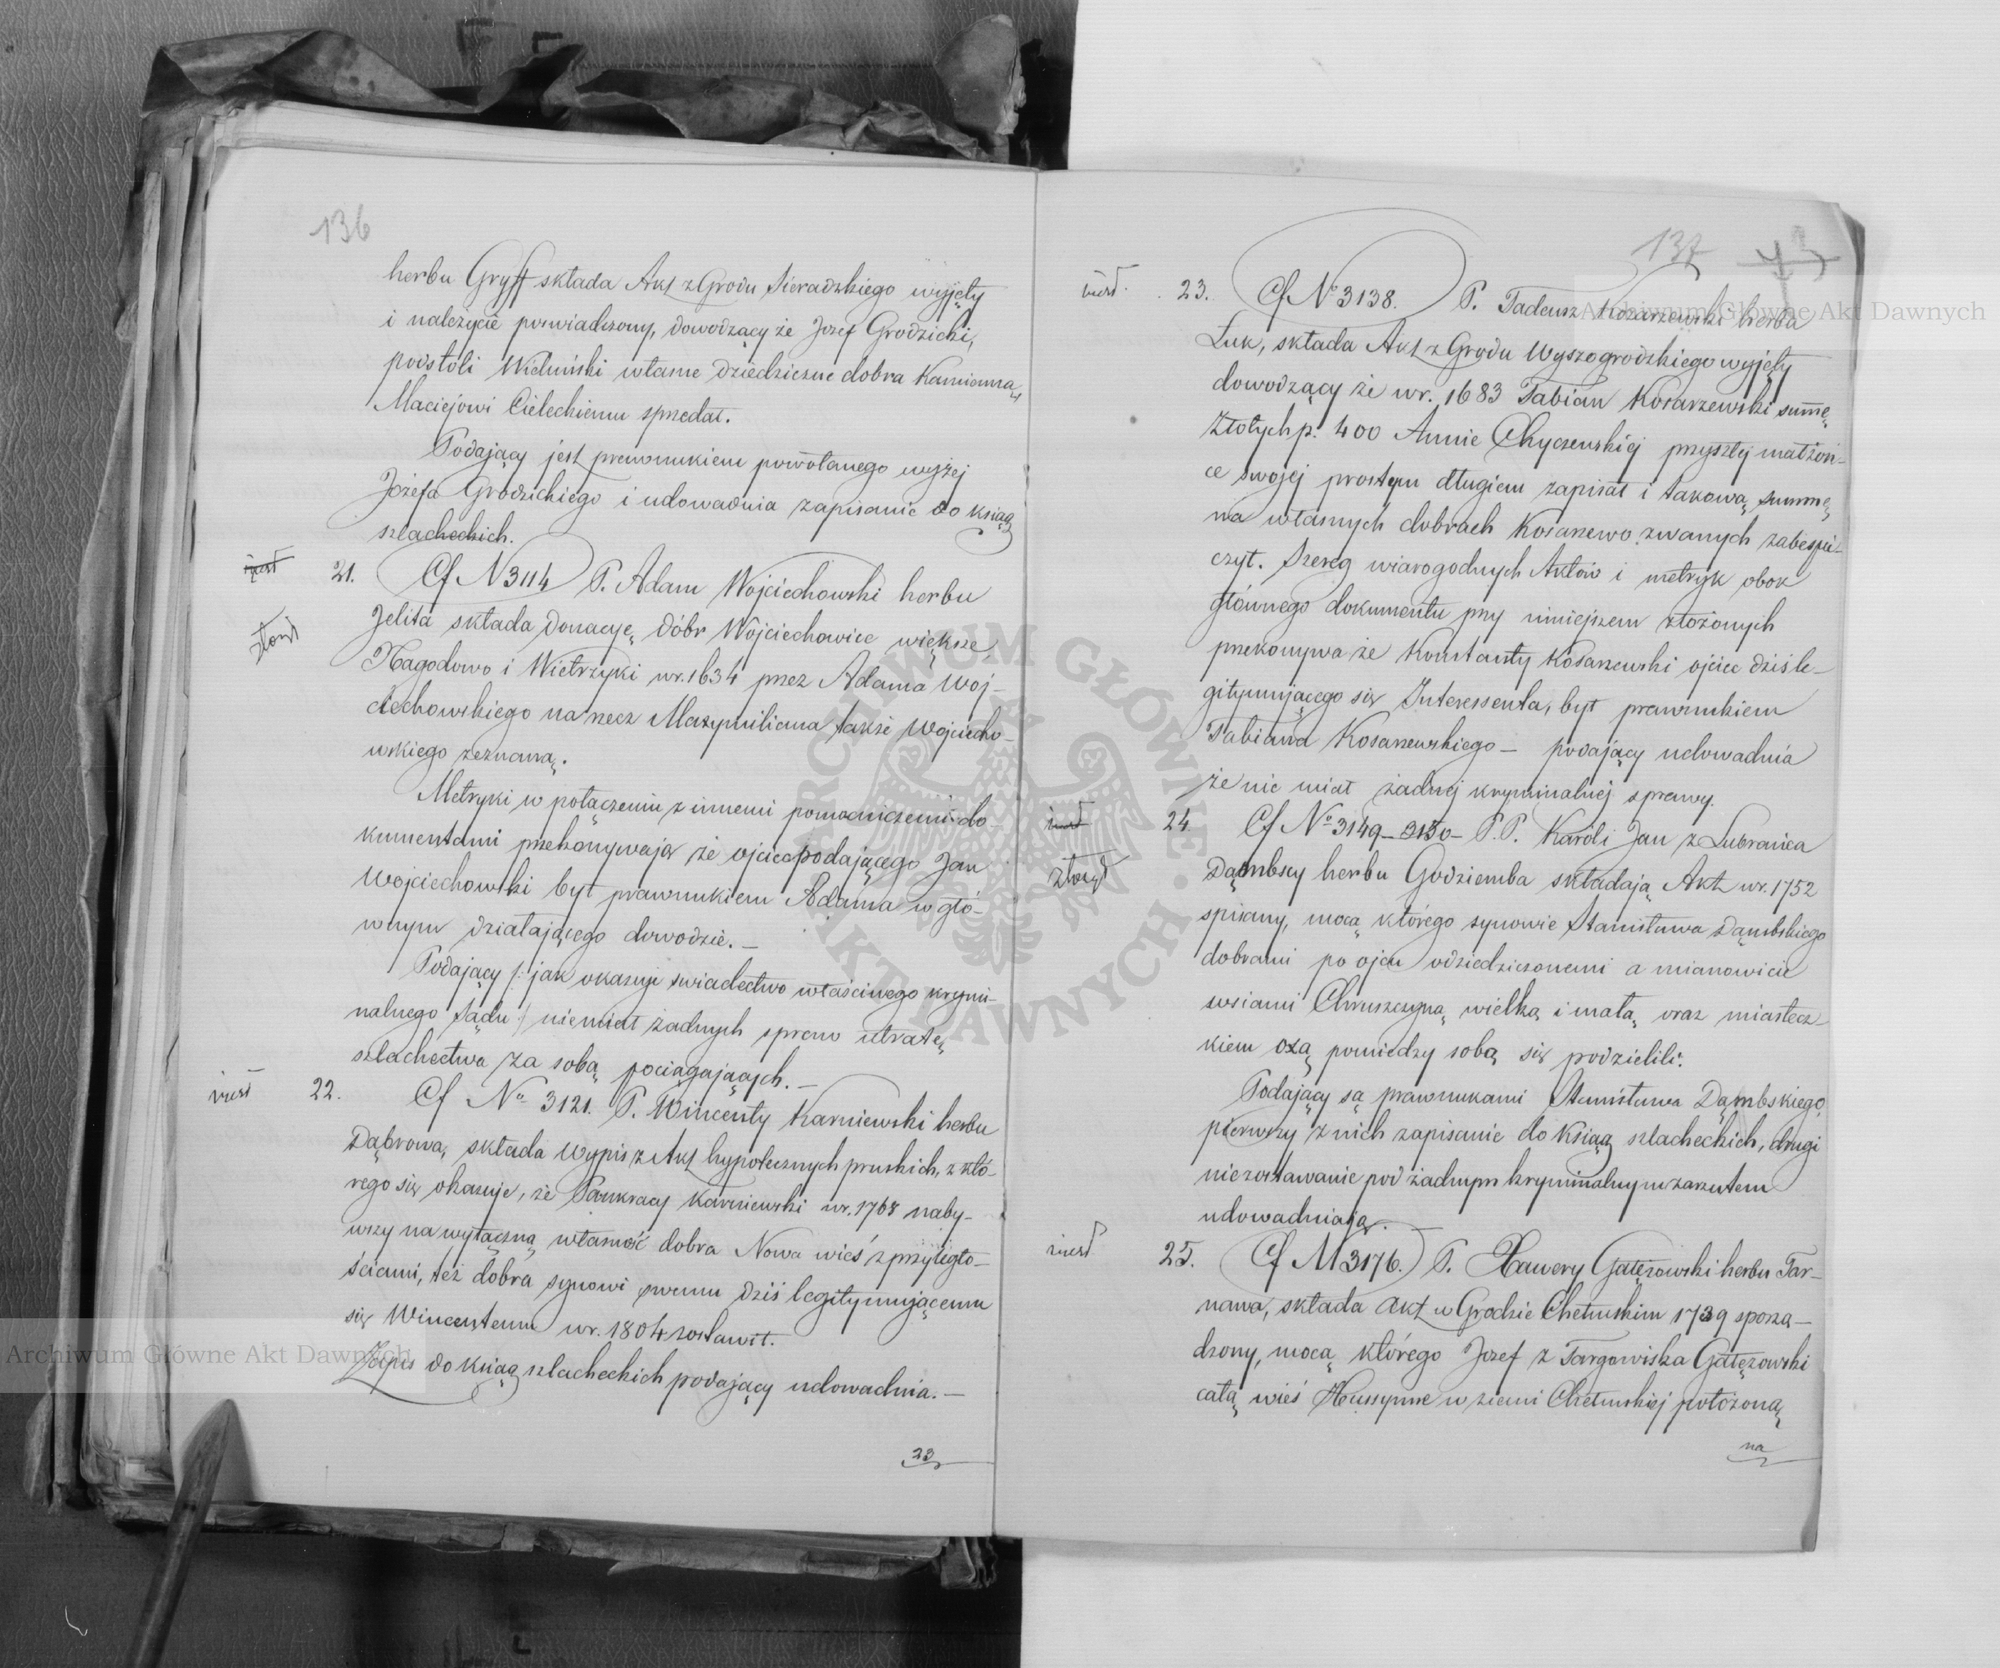 136
herbu Gryff składa Akt z Grodu Sieradzkiego wyjęty
i należycie poswiadczony, dowodzący że Jozef Grodzicki,
podstoli Wieluński własne dziedziczne dobra Kamionna
Maciejowi Cieleckiemu sprzedał.
Podający jest prawnukiem powołanego wyżej
Józefa Grodzickiego i udowadnia zapisanie do ksiąg
szlacheckich.
21. Cf N 3114 P. Adam Wojciechowski herbu
złożył
Jelita składa donacyę dóbr Wojciechowice większe,
Nagodowo i Wietrzyki w r. 1634 przez Adama Woj-
ciechowskiego na rzecz Maxymiliana także Wojciecho-
wskiego zeznaną.
Metryki w połączeniu z innemi pomocniczemi do-
kumentami przekonywają że ojciec podającego Jan
Wojciechowski był prawnukiem Adama w głó-
wnym działającego dowodzie. —
Podający /: jak okazuje swiadectwo właściwego krymi-
nalnego Sądu :/ niemiał żadnych spraw utratę
szlachectwa za sobą pociągających. —
22. Cf No 3121. P. Wincenty Karniewski herbu
Dąbrowa, składa wypis z Akt hypotecznych pruskich, z któ-
rego się okazuje, że Pankracy Karniewski w r. 1768 naby-
wszy na wyłączną własność dobra Nowa wieś z przyległo-
ściami, też dobra synowi swemu dziś legitymującemu
się Wincentemu w r. 1804 zostawił.
Zapis do ksiąg szlacheckich podający udowadnia. —
23
137
23. Cf No 3138. P. Tadeusz Kosarzewski herbu
Łuk, składa Akt z Grodu Wyszogrodzkiego wyjęty
dowodzący że w r. 1683 Fabian Kosarzewski summę
Złotych p. 400 Annie Chyczewskiej przyszłej małżon-
ce swojej prostym długiem zapisał i takową summę
na własnych dobrach Kosarzewo zwanych zabespie-
czył. Szereg wiarogodnych Aktów i metryk obok
głównego dokumentu przy niniejszem złożonych
przekonywa że Konstanty Kosarzewski ojciec dziś le-
gitymującego się Interessenta, był prawnukiem
Fabiana Kosarzewskiego — podający udowadnia
że nie miał żadnej kryminalnej sprawy.
24. Cf No 3149 – 3150 – P.P. Karól i Jan z Lubrańca
złożył
Dąmbscy herbu Godziemba składają Akt w r. 1752
spisany, mocą którego synowie Stanisława Dąmbskiego
dobrami po ojcu odziedziczonemi a mianowicie
wsiami Chruszczyną wielką i małą oraz miastecz-
kiem oxą pomiedzy sobą się podzielili:
Podający są prawnukami Stanisława Dąmbskiego,
pierwszy z nich zapisanie do ksiąg szlacheckich, drugi
niezostawanie pod żadnym kryminalnym zarzutem
udowadniają. —
25. Cf N 3176. P. Xawery Gałęzowski herbu Tar-
nawa, składa akt w Grodzie Chełmskim 1739 sporzą-
dzony, mocą którego Jozef z Targowiska Gałęzowski
całą wieś Hussynne w ziemi Chełmskiej położoną
na
Archiwum Główne Akt Dawnych
Archiwum Główne Akt Dawnych
ARCHIWUM GŁÓWNE AKT DAWNYCH